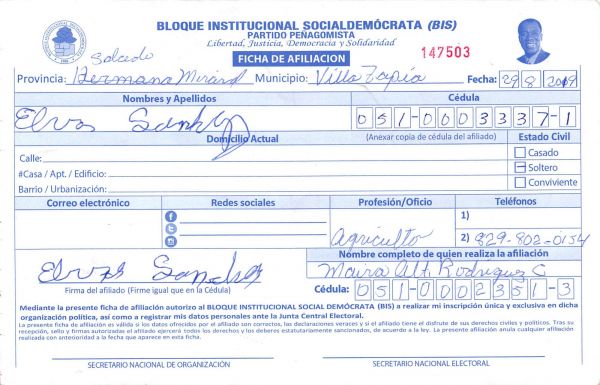 BLOQUE INSTITUCIONAL SOCIALDEMÓCRATA (BIS)
PARTIDO PEÑAGOMISTA
Libertad, Justicia, Democracia y Solidaridad
FICHA DE AFILIACION
147503
Salcedo
Provincia: Hermana Mirabal Municipio: Villa Tapia Fecha: 29 8 2019
Nombres y Apellidos Cédula
051-0003337-1
Domicilio Actual (Anexar copia de cédula del afiliado) Estado Civil
Calle: Casado
#Casa / Apt. / Edificio: Soltero
Barrio / Urbanización: Conviviente
Correo electrónico Redes sociales Profesión/Oficio Teléfonos
1)
Agriculto 2) 829-802-0154
Nombre completo de quien realiza la afiliación
Maira Alt. Rodriguez C
Firma del afiliado (Firme igual que en la Cédula) Cédula: 051-0002351-3
Mediante la presente ficha de afiliación autorizo al BLOQUE INSTITUCIONAL SOCIAL DEMÓCRATA (BIS) a realizar mi inscripción única y exclusiva en dicha
organización política, así como a registrar mis datos personales ante la Junta Central Electoral.
La presente ficha de afiliación es válida si los datos ofrecidos por el afiliado son correctos, las declaraciones veraces y si el afiliado tiene el disfrute de sus derechos civiles y políticos. Tras su
recepción, sello y firmas autorizadas el afiliado ejercerá todos los derechos y los deberes estatutariamente sancionados, de acuerdo a la ley. La presente afiliación anula cualquier afiliación
realizada con anterioridad a la fecha que aparece en esta ficha.
SECRETARIO NACIONAL DE ORGANIZACIÓN SECRETARIO NACIONAL ELECTORAL